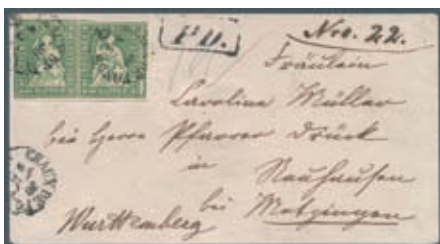 P.D.
Nro. 22.
Fräulein
Caroline Müller
bei Herrn Pfarrer Drück
in
Neuhausen
bei Metzingen
Württemberg
CHAUX DE